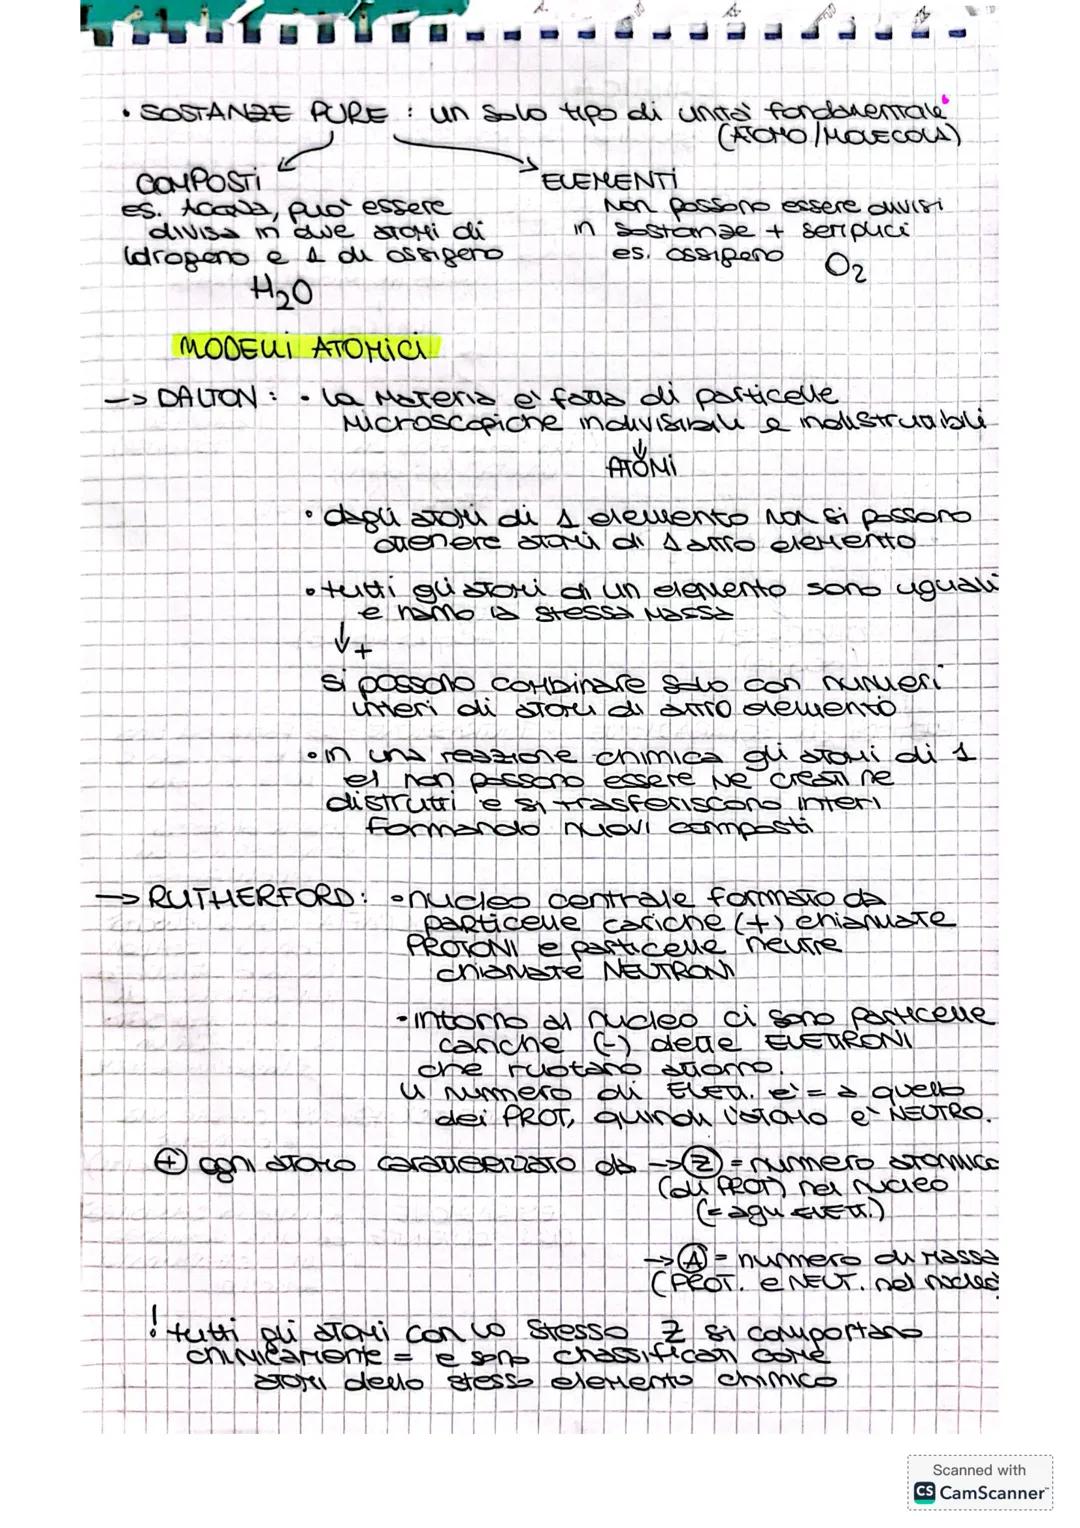 • SOSTANZE PURE : un solo tipo di unità fondamentale
(ATOMO/MOLECOLA)
COMPOSTI
es. ACQUA, può essere
divisa in due atomi di
idrogeno e 1 di ossigeno
H₂O
ELEMENTI
Non possono essere divisi
in sostanze + semplici
es. ossigeno O₂
MODELLI ATOMICI
-> DALTON : • la Materia e' fatta di particelle
Microscopiche indivisibili e indistruttibili
ATOMI
• dagli atomi di 1 elemento non si possono
ottenere atomi di 1 altro elemento
• tutti gli atomi di un elemento sono uguali
e hanno la stessa Massa
↓ +
si possono combinare solo con numeri
interi di atomi di altro elemento
• in una reazione chimica gli atomi di 1
el non possono essere ne creati ne
distrutti e si trasferiscono interi
formando nuovi composti
-> RUTHERFORD: • nucleo centrale formato da
particelle cariche (+) chiamate
PROTONI e particelle neutre
chiamate NEUTRONI
• intorno al nucleo ci sono particelle
cariche (-) dette ELETTRONI
che ruotano attorno.
il numero di ELETT. e' = a quello
dei PROT, quindi l'atomo e' NEUTRO.
⊕ ogni atomo caratterizzato da -> Ⓩ = numero atomico
(di PROT) nel nucleo
(= agli ELETT.)
-> Ⓐ = numero di Massa
(PROT. e NEUT. nel nucleo
! tutti gli atomi con lo stesso Z si comportano
chimicamente = e sono classificati come
atomi dello stesso elemento chimico
Scanned with
CS CamScanner